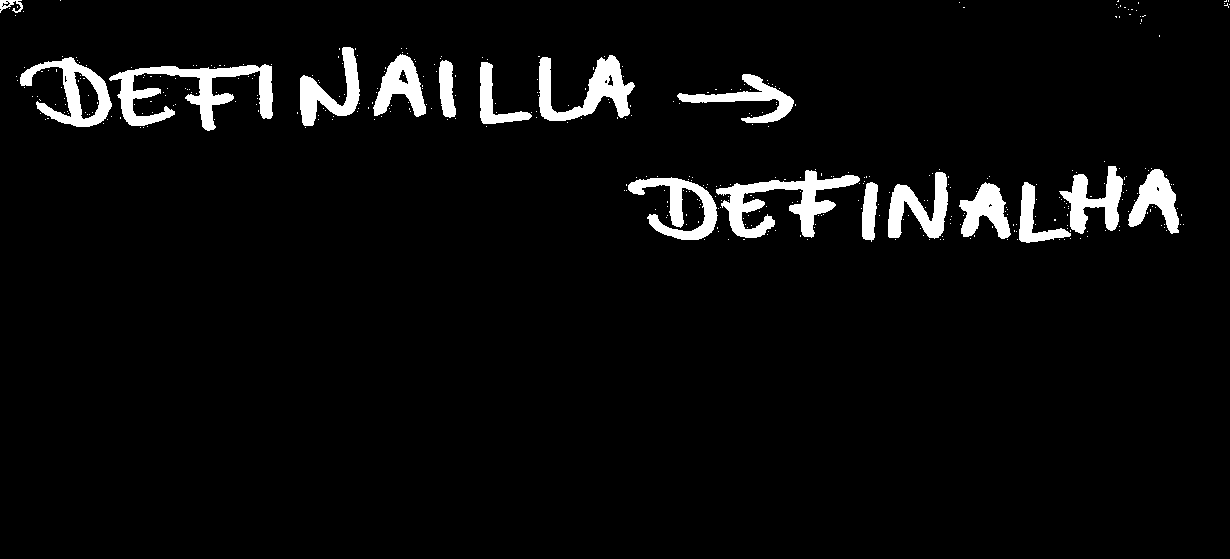 DEFINAILLA →
DEFINALHA